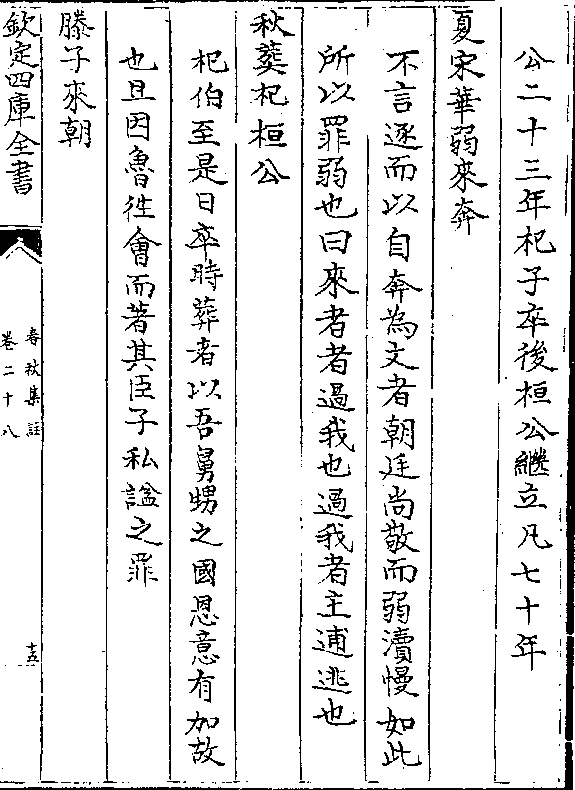 公二十三年杞子卒後桓公繼立凡七十年
夏宋華弱來奔
不言逐而以自奔為文者朝廷尚敬而弱瀆慢如此
所以罪弱也曰來者著過我也過我者主逋逃也
秋葬杞桓公
杞伯至是日卒時葬者以吾舅甥之國恩意有加故
也且因魯徃會而著其臣子私諡之罪
滕子來朝
欽定四庫全書
春秋集註
卷二十八
十五